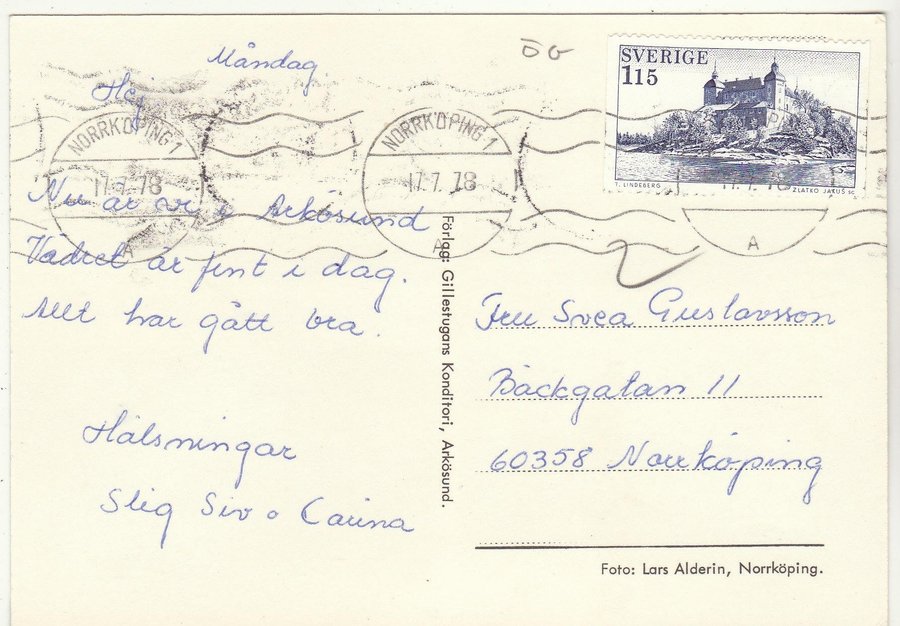 Måndag
Hej
Nu är vi i Arkösund
Vädret är fint i dag.
Allt har gått bra.
Hälsningar
Stig Siv o Carina
Förlag: Gillestugans Konditori, Arkösund.
ÖG
SVERIGE
115
T. LINDEBERG
ZLATKO JAKUŠ SC.
NORRKÖPING 1
17.7.78
A
NORRKÖPING 1
17.7.78
A
17.7.78
A
Fru Svea Gustavsson
Bäckgatan 11
60358 Norrköping
Foto: Lars Alderin, Norrköping.